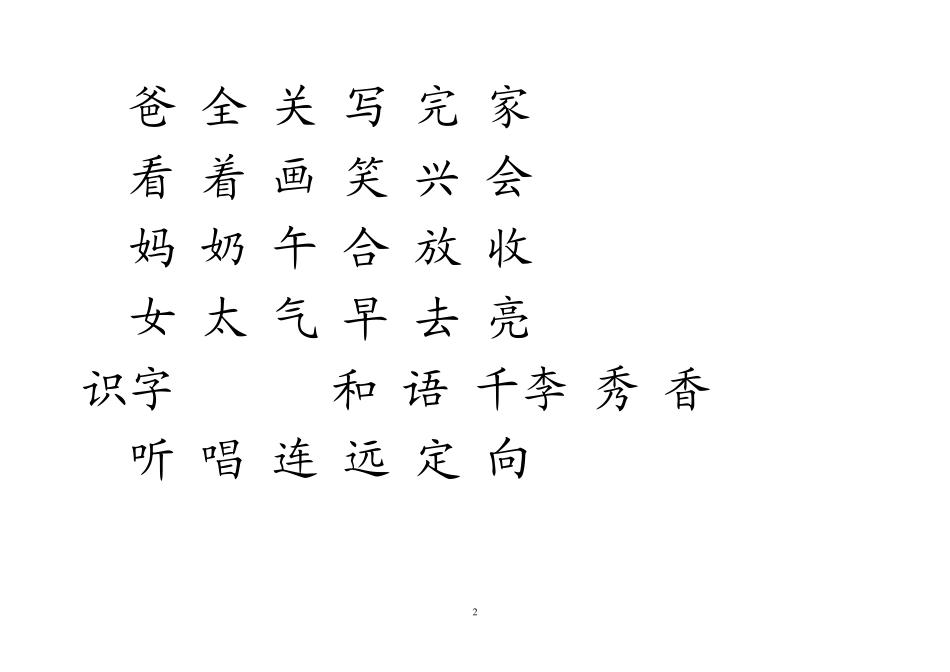 爸 全 关 写 完 家
看 着 画 笑 兴 会
妈 奶 午 合 放 收
女 太 气 早 去 亮
识字 和 语 千李 秀 香
听 唱 连 远 定 向
2